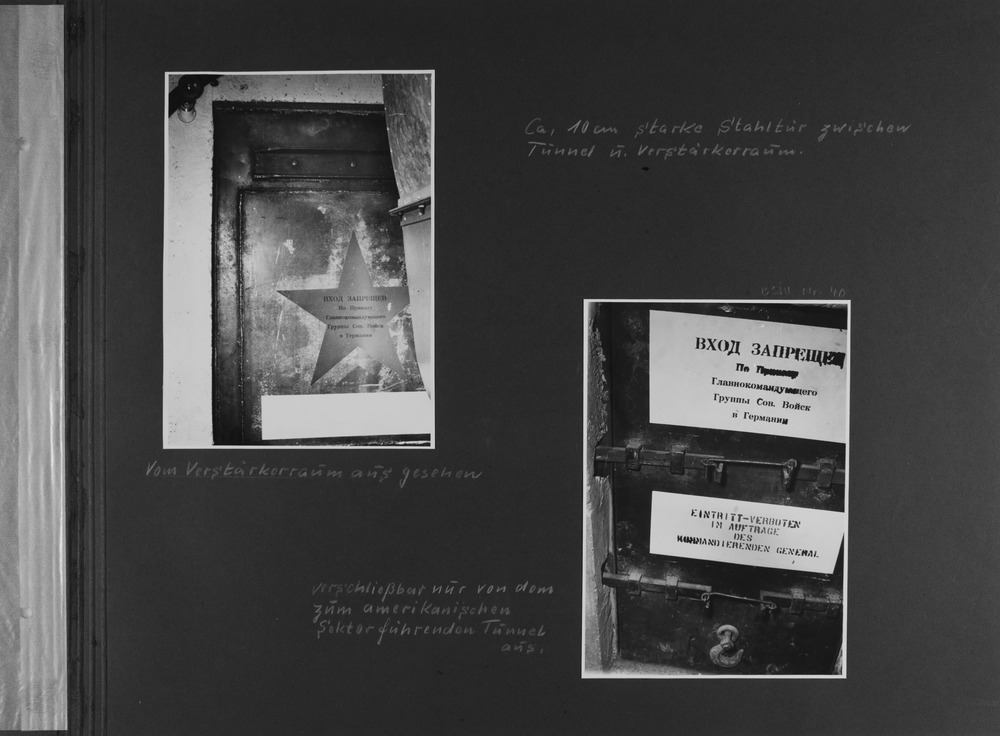 Ca, 10 cm starke Stahltür zwischen
Tunnel u. Verstärkerraum.
ВХОД ЗАПРЕЩЕН
По Приказу
Главнокомандующего
Группы Сов. Войск
в Германии
Vom Verstärkerraum aus gesehen
BStU Nr. 40
ВХОД ЗАПРЕЩЕН
По Приказу
Главнокомандующего
Группы Сов. Войск
в Германии
EINTRITT-VERBOTEN
IM AUFTRAGE
DES
KOMMANDIERENDEN GENERAL
verschließbar nur von dem
zum amerikanischen
Sektor führenden Tunnel
aus.